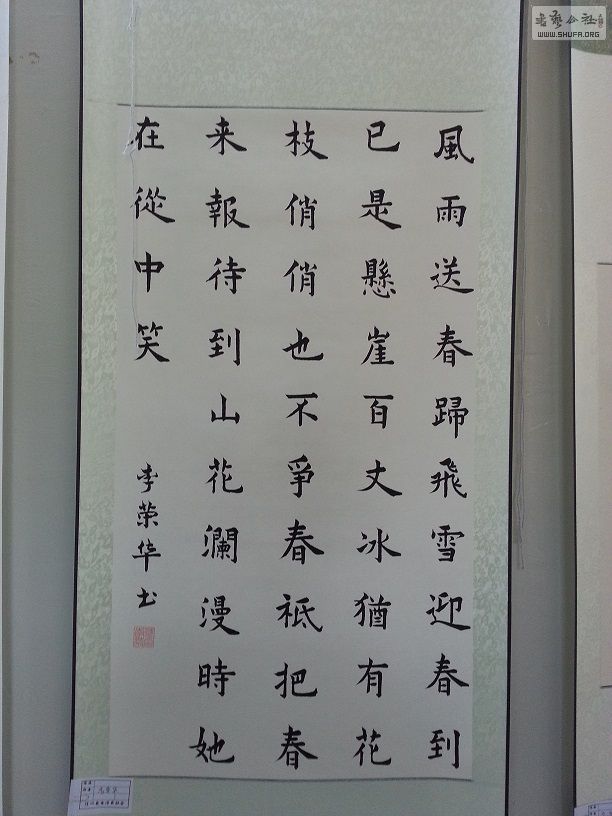 風雨送春歸飛雪迎春到
已是懸崖百丈冰猶有花
枝俏俏也不爭春祇把春
来報待到山花瀾漫時她
在從中笑
李荣华书
WWW.SHUFA.ORG